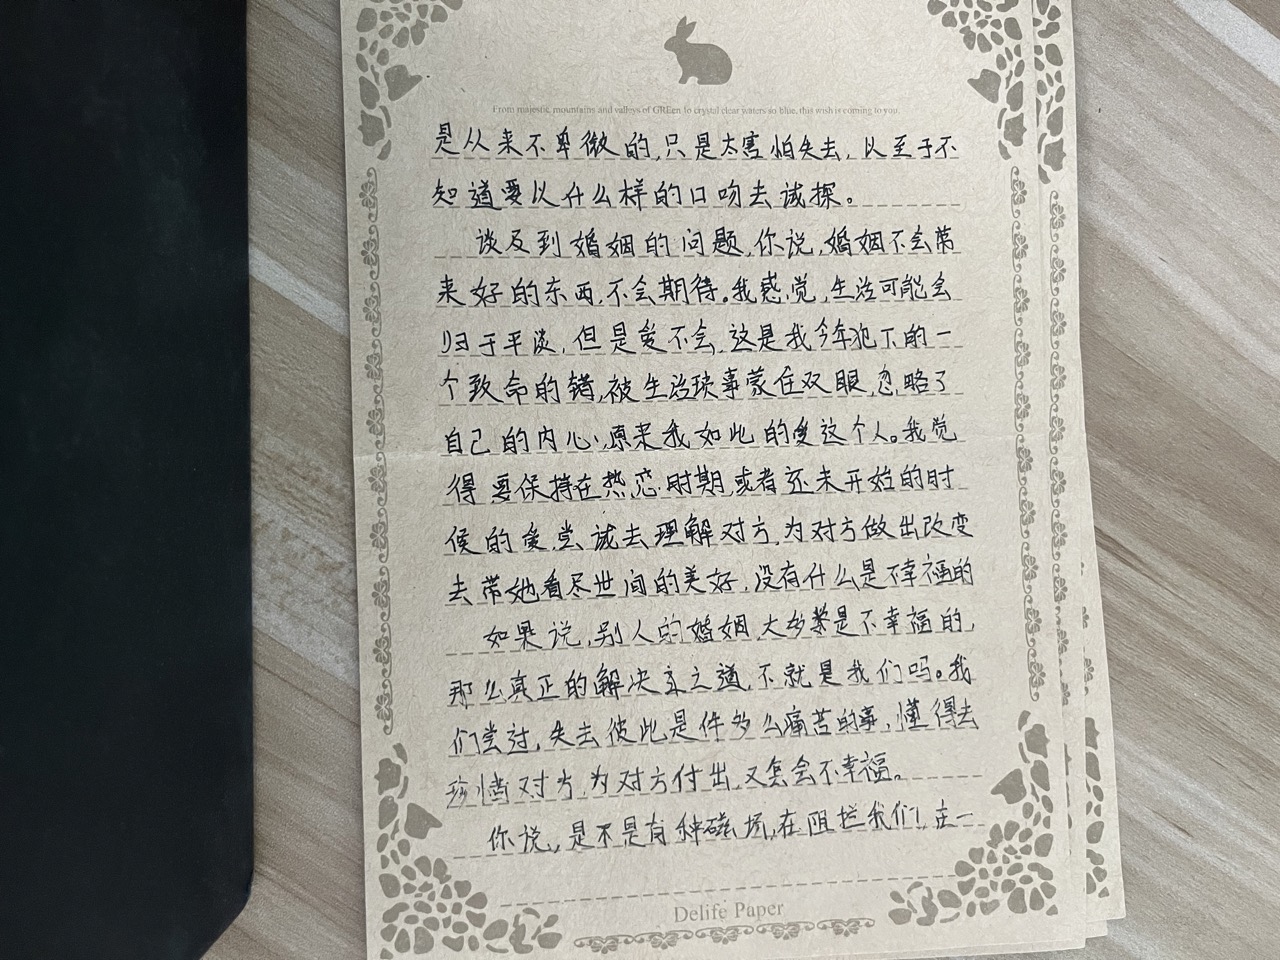 From majestic mountains and valleys of GREen to crystal clear waters so blue, this wish is coming to you.
是从来不卑微的,只是太害怕失去,以至于不
知道要以什么样的口吻去试探。
谈及到婚姻的问题,你说,婚姻不会带
来好的东西,不会期待。我感觉,生活可能会
归于平淡,但是爱不会,这是我今年犯下的一
个致命的错,被生活琐事蒙住双眼,忽略了
自己的内心,原来我如此的爱这个人。我觉
得要保持在热恋时期或者还未开始的时
候的爱,尝试去理解对方,为对方做出改变
去带她看尽世间的美好,没有什么是不幸福的
如果说,别人的婚姻大多数是不幸福的,
那么真正的解决之道,不就是我们吗。我
们尝过,失去彼此是件多么痛苦的事,懂得去
珍惜对方,为对方付出,又怎会不幸福。
你说,是不是有种磁场,在阻拦我们在一
Delife Paper